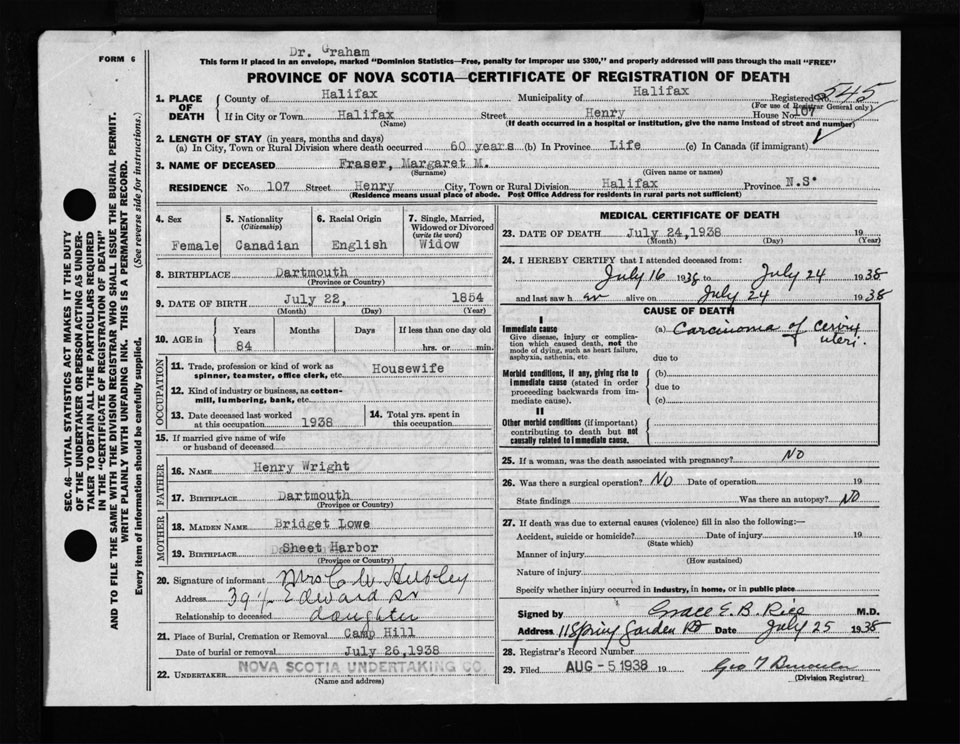 Dr. Graham
FORM 6
This form if placed in an envelope, marked "Dominion Statistics—Free, penalty for improper use $300," and properly addressed will pass through the mail "FREE"
PROVINCE OF NOVA SCOTIA—CERTIFICATE OF REGISTRATION OF DEATH
545
1. PLACE OF DEATH
County of Halifax Municipality of Halifax Registered No.
(For use of Registrar General only)
If in City or Town Halifax Street Henry House No. 107
(Name) (If death occurred in a hospital or institution, give the name instead of street and number)
2. LENGTH OF STAY (in years, months and days)
(a) In City, Town or Rural Division where death occurred 60 years (b) In Province Life (c) In Canada (if immigrant)
3. NAME OF DECEASED Fraser, Margaret M.
(Surname) (Given name or names)
RESIDENCE No. 107 Street Henry City, Town or Rural Division Halifax Province N.S.
(Residence means usual place of abode. Post Office Address for residents in rural parts not sufficient)
4. Sex
Female
5. Nationality
(Citizenship)
Canadian
6. Racial Origin
English
7. Single, Married, Widowed or Divorced
(write the word)
Widow
8. BIRTHPLACE Dartmouth
(Province or Country)
9. DATE OF BIRTH July 22, 1854
(Month) (Day) (Year)
10. AGE in
Years Months Days If less than one day old
84 hrs. or min.
OCCUPATION
11. Trade, profession or kind of work as spinner, teamster, office clerk, etc. Housewife
12. Kind of industry or business, as cotton-mill, lumbering, bank, etc.
13. Date deceased last worked at this occupation 1938
14. Total yrs. spent in this occupation
15. If married give name of wife or husband of deceased
FATHER
16. NAME Henry Wright
17. BIRTHPLACE Dartmouth
(Province or Country)
MOTHER
18. MAIDEN NAME Bridget Lowe
19. BIRTHPLACE Sheet Harbor
(Province or Country)
20. Signature of informant Mrs C W Hubley
Address 39 1/2 Edward St
Relationship to deceased daughter
21. Place of Burial, Cremation or Removal Camp Hill
Date of burial or removal July 26, 1938
22. UNDERTAKER NOVA SCOTIA UNDERTAKING CO.
(Name and address)
MEDICAL CERTIFICATE OF DEATH
23. DATE OF DEATH July 24, 1938 19
(Month) (Day) (Year)
24. I HEREBY CERTIFY that I attended deceased from:
July 16 1938 to July 24 1938
and last saw h er alive on July 24 1938
CAUSE OF DEATH
I
Immediate cause
Give disease, injury or complication which caused death, not the mode of dying, such as heart failure, asphyxia, asthenia, etc
(a) Carcinoma of Cervix uteri.
due to
Morbid conditions, if any, giving rise to immediate cause (stated in order proceeding backwards from immediate cause).
(b)
due to
(c)
II
Other morbid conditions (if important) contributing to death but not causally related to immediate cause.
25. If a woman, was the death associated with pregnancy? No
26. Was there a surgical operation? No Date of operation 19
State findings Was there an autopsy? No
27. If death was due to external causes (violence) fill in also the following:—
Accident, suicide or homicide? Date of injury 19
(State which)
Manner of injury
(How sustained)
Nature of injury
Specify whether injury occurred in industry, in home, or in public place
Signed by Grace E. B. Rice M.D.
Address 11 Spring Garden Rd Date July 25 1938
28. Registrar's Record Number
29. Filed AUG - 5 1938 19
(Division Registrar)
SEC. 46—VITAL STATISTICS ACT MAKES IT THE DUTY
OF THE UNDERTAKER OR PERSON ACTING AS UNDER-
TAKER TO OBTAIN ALL THE PARTICULARS REQUIRED
IN THE "CERTIFICATE OF REGISTRATION OF DEATH"
AND TO FILE THE SAME WITH THE DIVISION REGISTRAR WHO SHALL ISSUE THE BURIAL PERMIT.
WRITE PLAINLY WITH UNFADING INK. THIS IS A PERMANENT RECORD.
Every item of information should be carefully supplied. (See reverse side for instructions.)